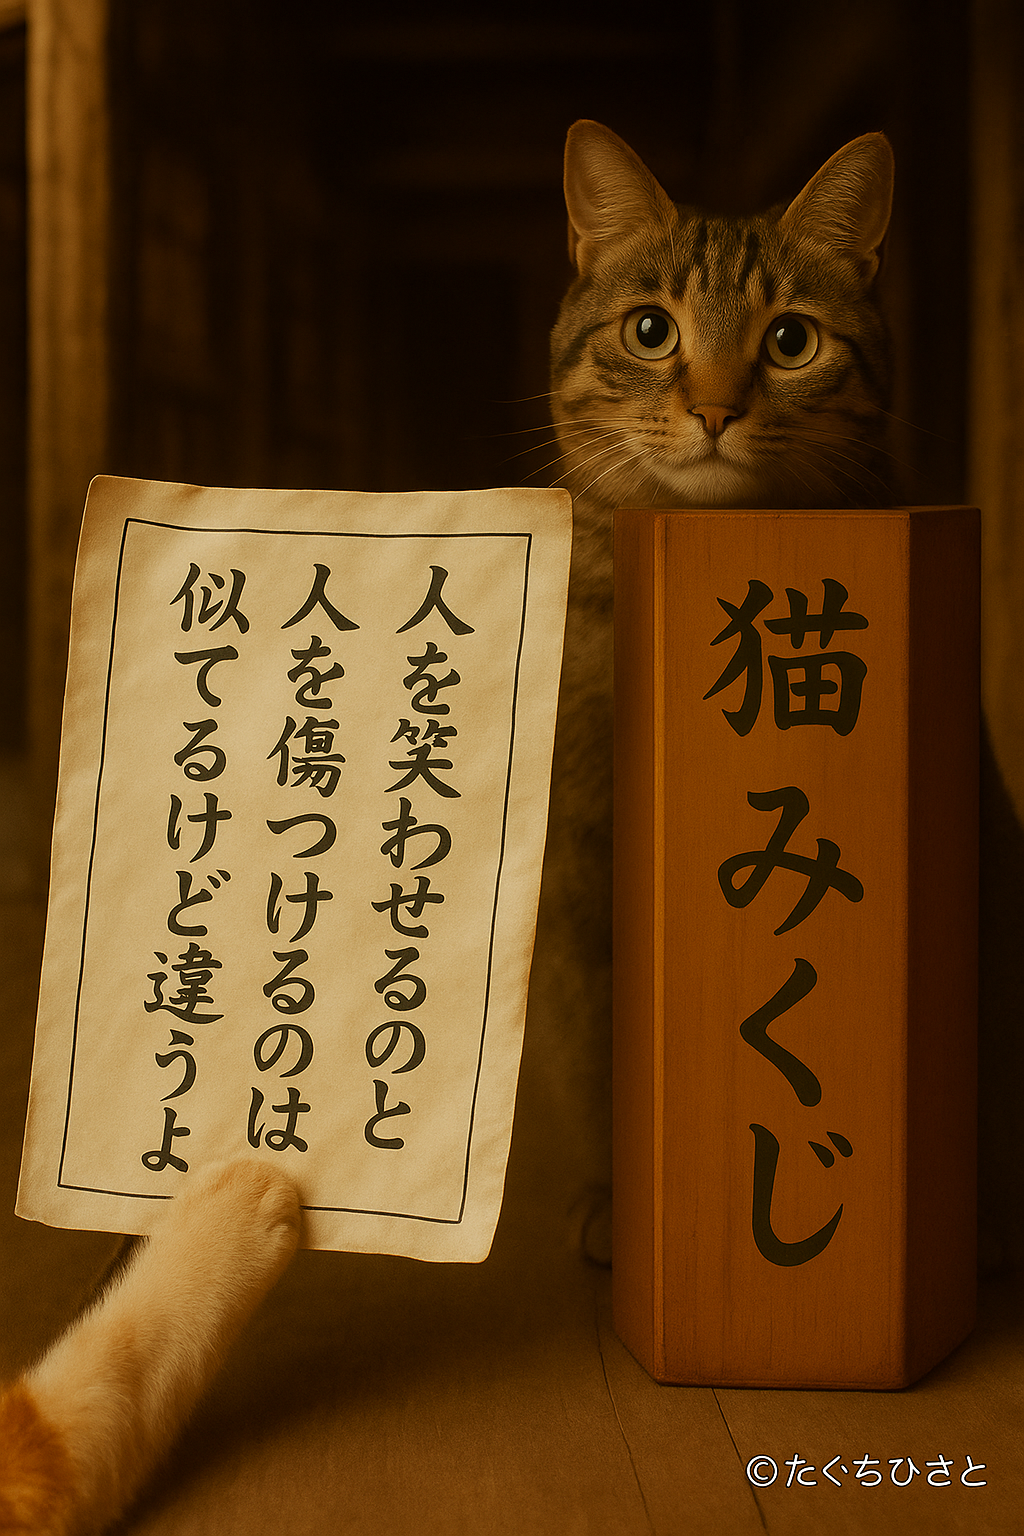 人を笑わせるのと
人を傷つけるのは
似てるけど違うよ
猫みくじ
©たぐちひさと